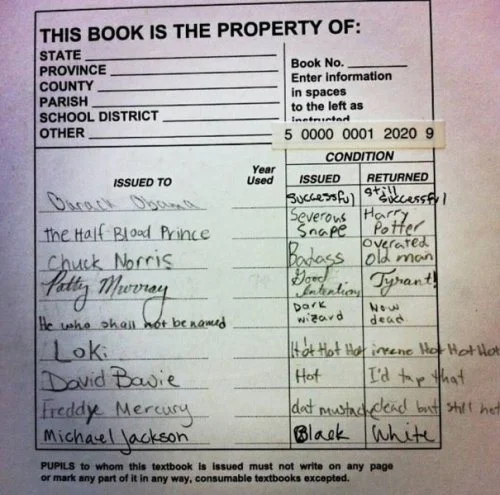 THIS BOOK IS THE PROPERTY OF:
STATE
PROVINCE
COUNTY
PARISH
SCHOOL DISTRICT
OTHER
Book No.
Enter information
in spaces
to the left as
instructed
5 0000 0001 2020 9
CONDITION
ISSUED TO Year Used ISSUED RETURNED
Barack Obama successful still successful
the Half Blood Prince Severous Snape Harry Potter
Chuck Norris Badass Overated old man
Patty Murray Good Intentions Tyrant!
He who shall not be named Dark wizard Now dead
Loki Hot Hot Hot insane Hot Hot Hot
David Bowie Hot I'd tap that
Freddye Mercury dat mustache dead but still hot
Michael Jackson Black White
PUPILS to whom this textbook is issued must not write on any page
or mark any part of it in any way, consumable textbooks excepted.